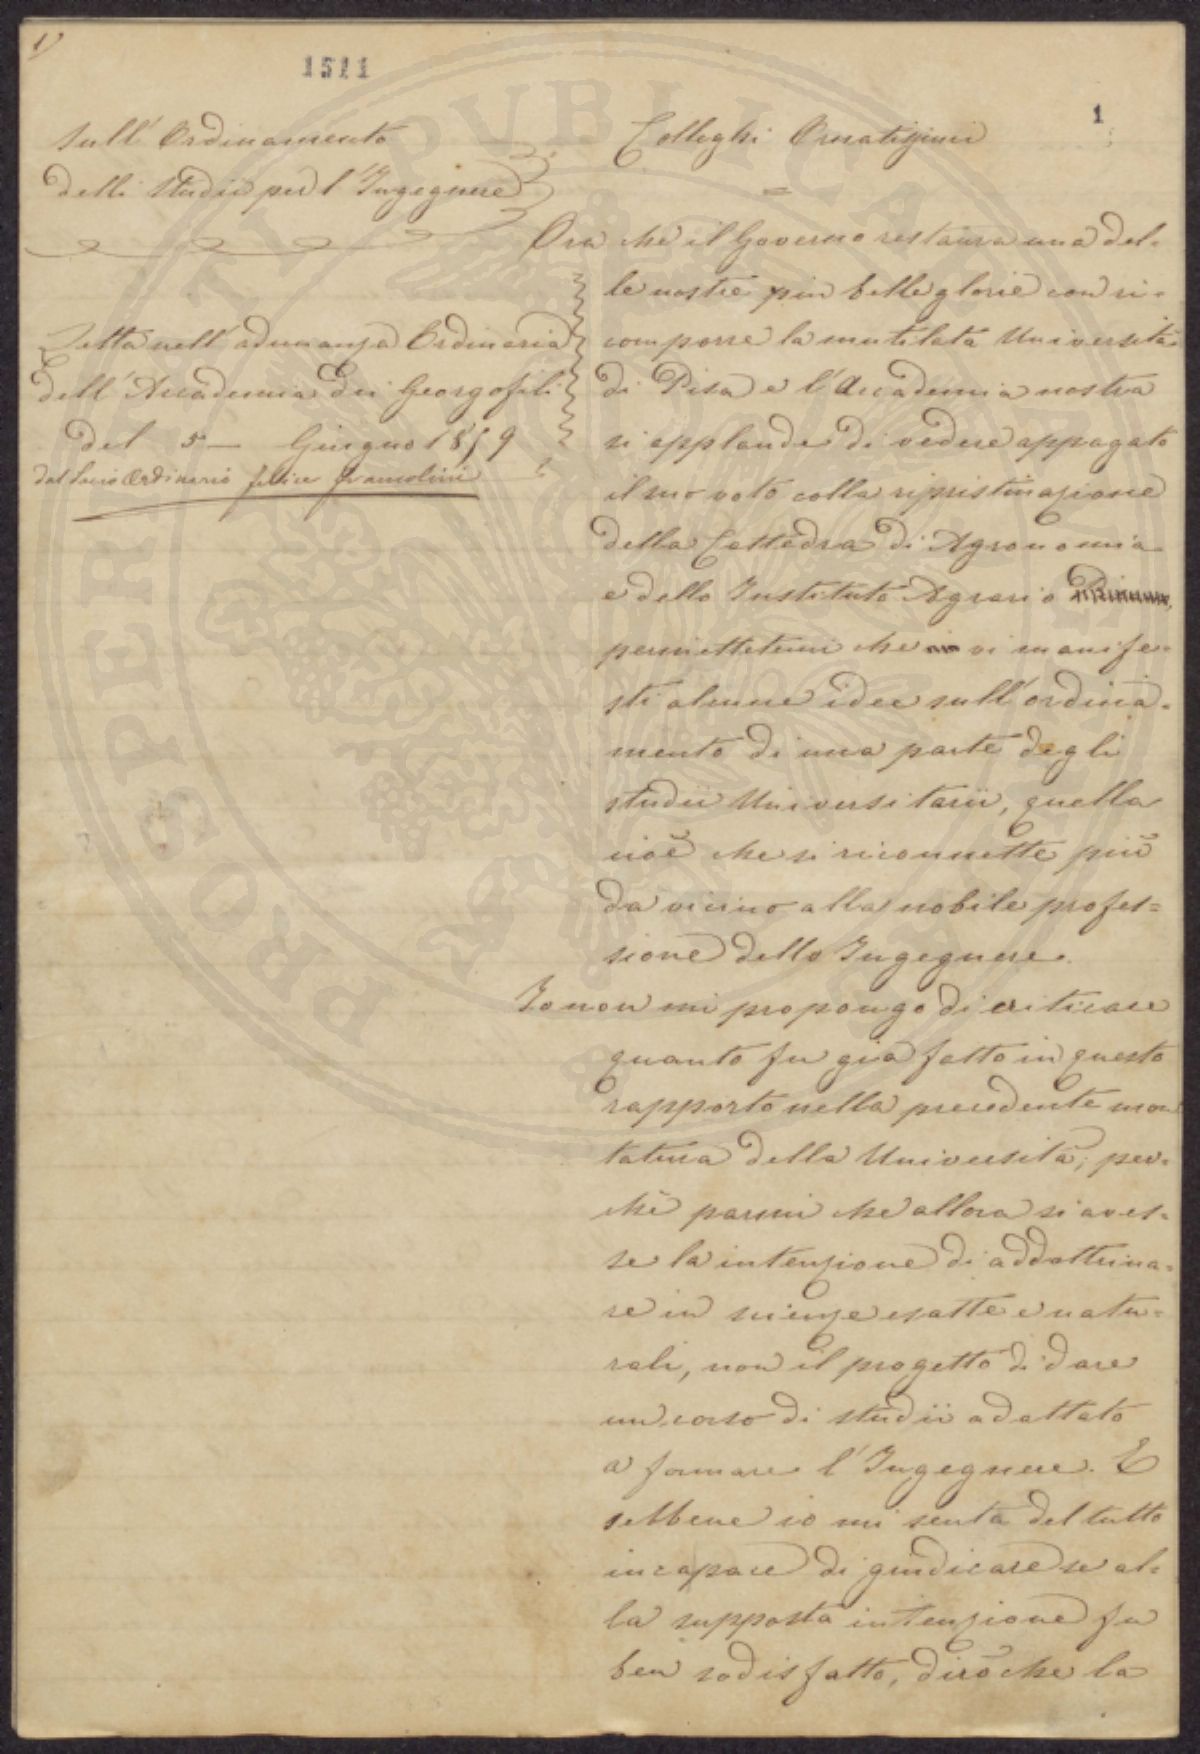 1)
1511
1
Sull' Ordinamento
delli Studii per l'Ingegnere
Letta nell' adunanza Ordinaria
dell' Accademia dei Georgofili
del 5 — Giugno 1859
dal Socio Ordinario Felice Francolini
Colleghi Ornatissimi
=
Ora che il Governo restaura una del=
le nostre più belle glorie con ri=
comporre la mutilata Università
di Pisa e l'Accademia nostra
si applaude di vedere appagato
il suo voto colla ripristinazione
della Cattedra di Agronomia
e dello Instituto Agrario
permettetemi che vi manife=
sti alcune idee sull' ordina=
mento di una parte degli
studii Universitarii, quella
cioè che si riconnette più
da vicino alla nobile profes=
sione dello Ingegnere.
Io non mi propongo di criticare
quanto fu già fatto in questo
rapporto nella precedente mon
tatura della Università; per=
chè parmi che allora si aves=
se la intenzione di addottrina=
re in scienze esatte e natu=
rali, non il progetto di dare
un corso di studii adattato
a formare l'Ingegnere. E
sebbene io mi senta del tutto
incapace di giudicare se al=
la supposta intenzione fu
ben sodisfatto, dirò che la
PROSPERITATI PUBLICAE